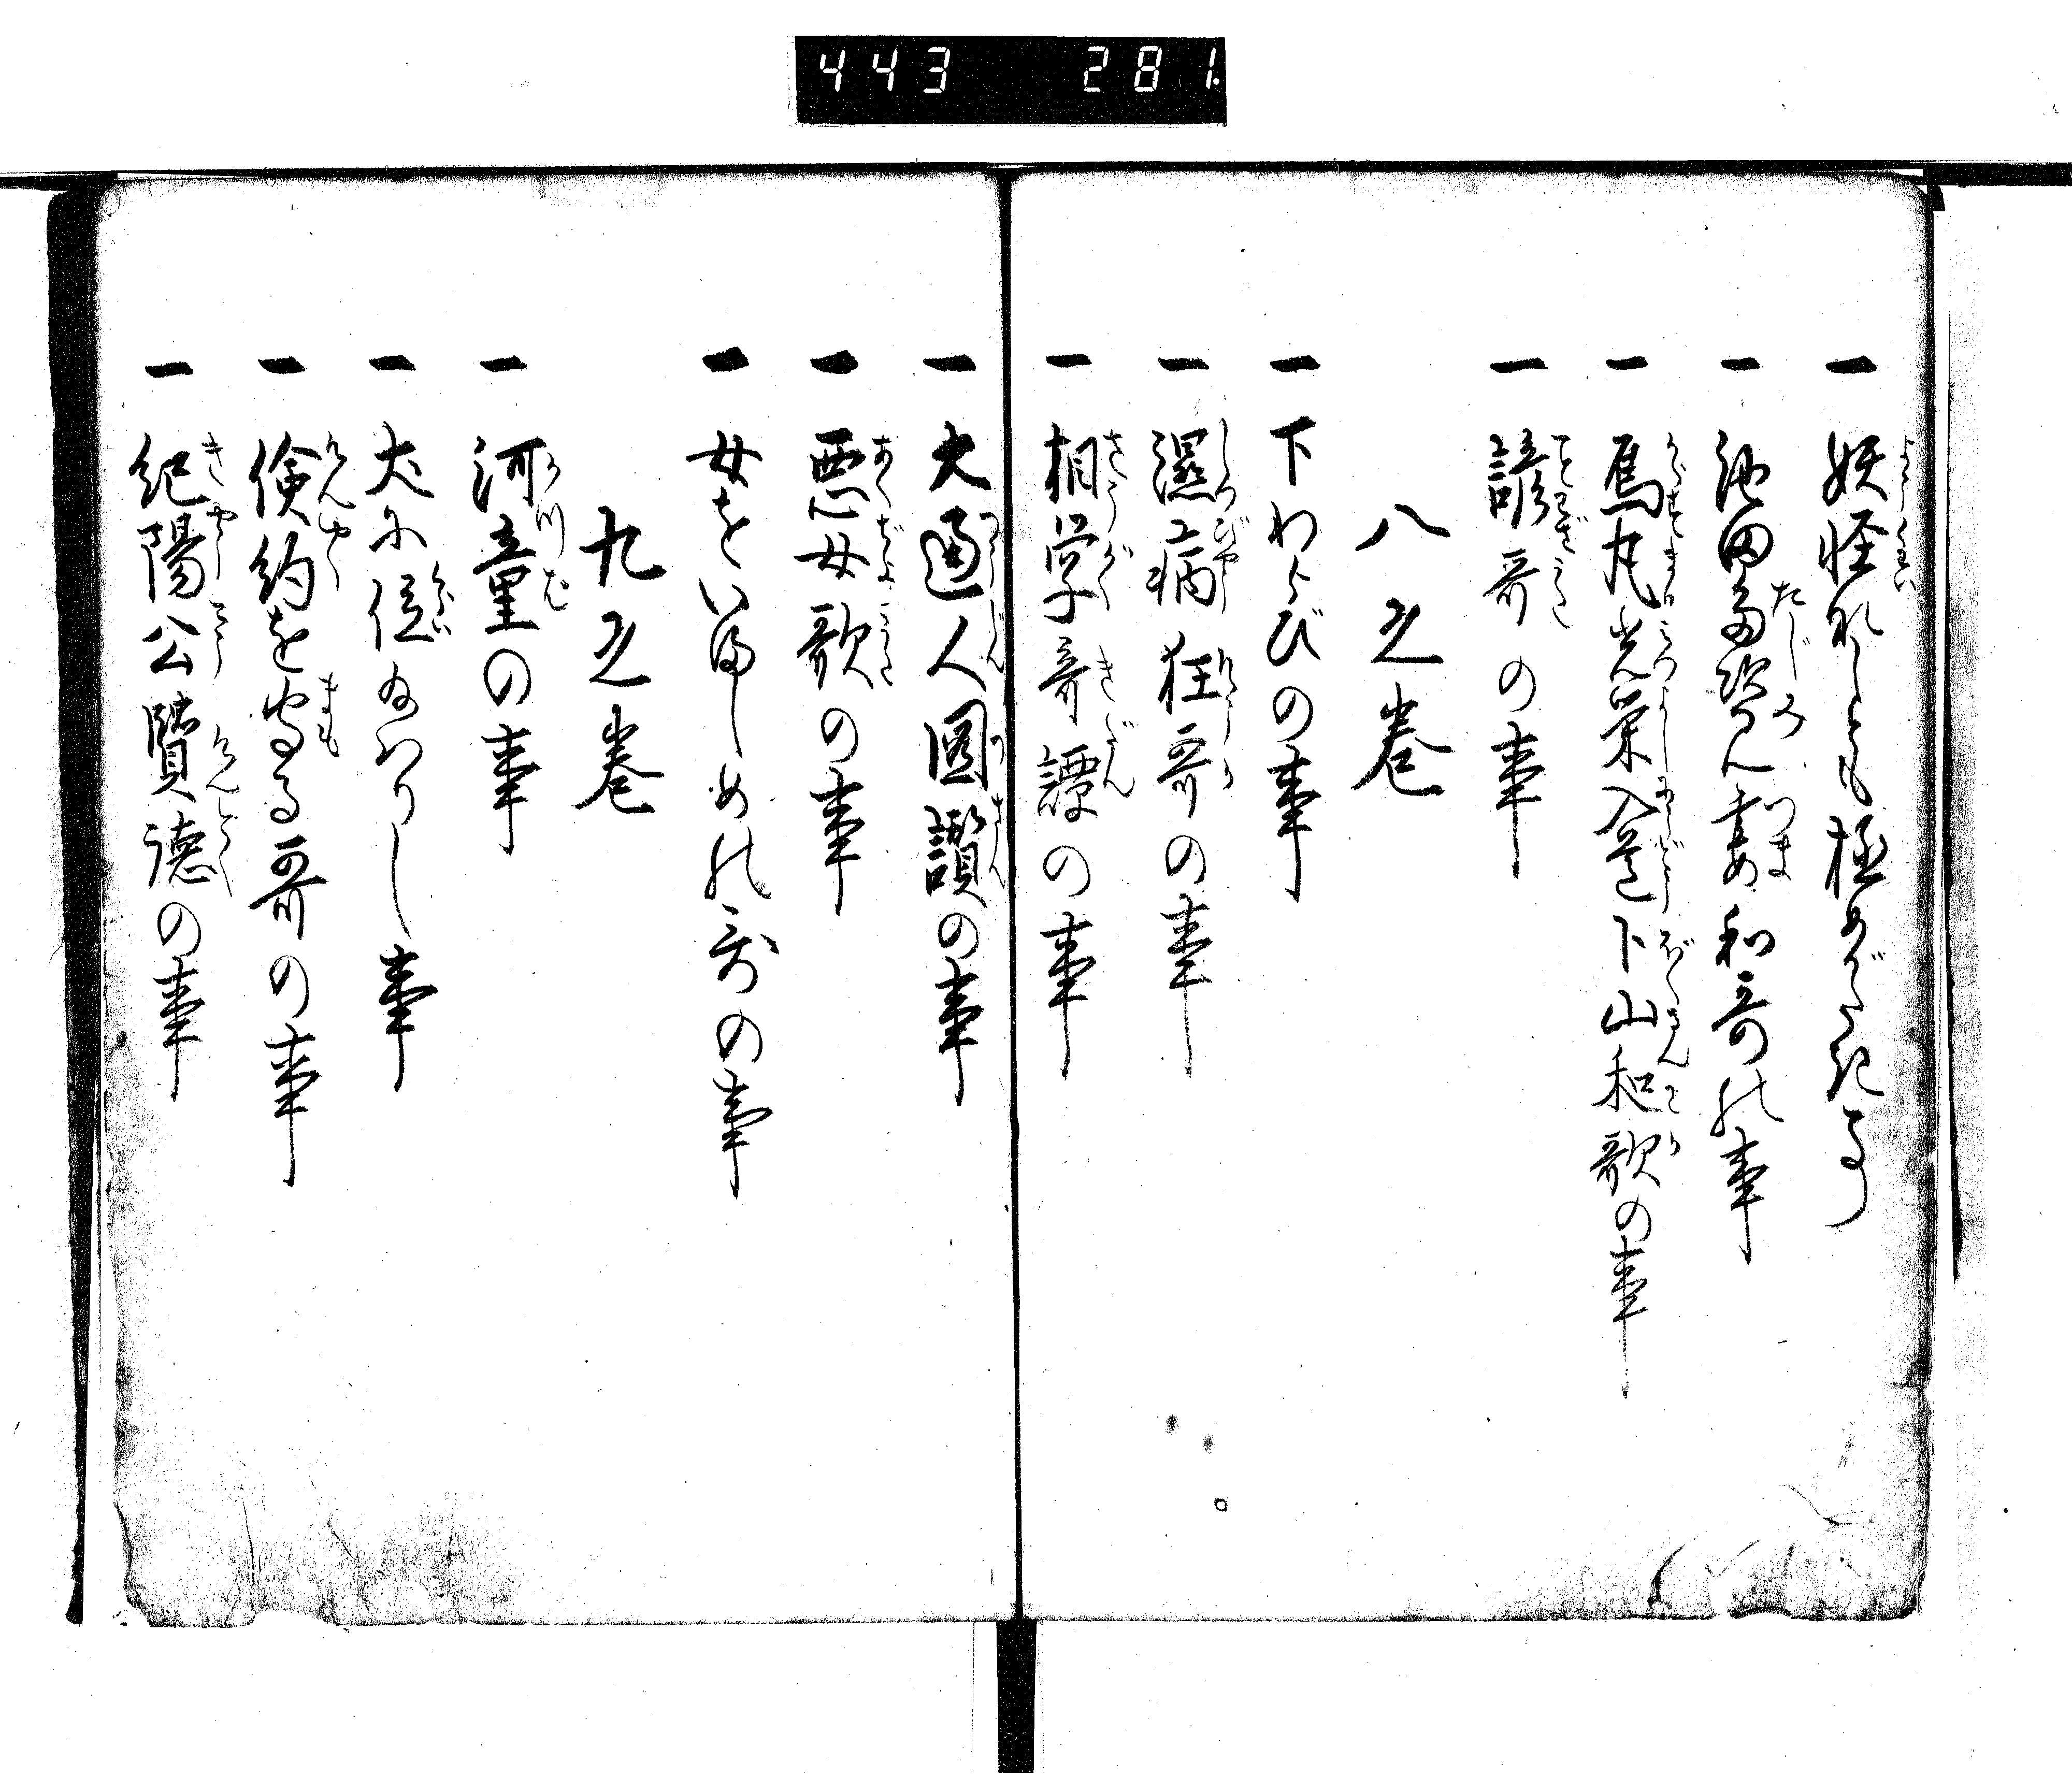 443 281
一 妖怪なしとも極めがたき事
一 池田多治見妻和哥の事
一 烏丸光栄入道卜山和歌の事
一 諺哥の事
八之巻
一 下わらびの事
一 濕病狂哥の事
一 相学奇譚の事
一 大通人圖讃の事
一 悪女歌の事
一 女をいましめの哥の事
九之巻
一 河童の事
一 犬に位給はりし事
一 倹約を守る哥の事
一 紀陽公賢徳の事